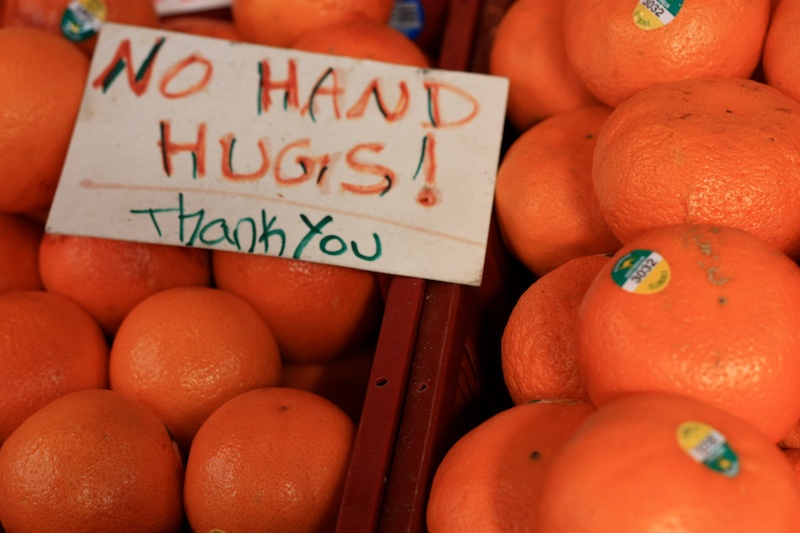 NO HAND
HUGS!
Thank You
3032
3032